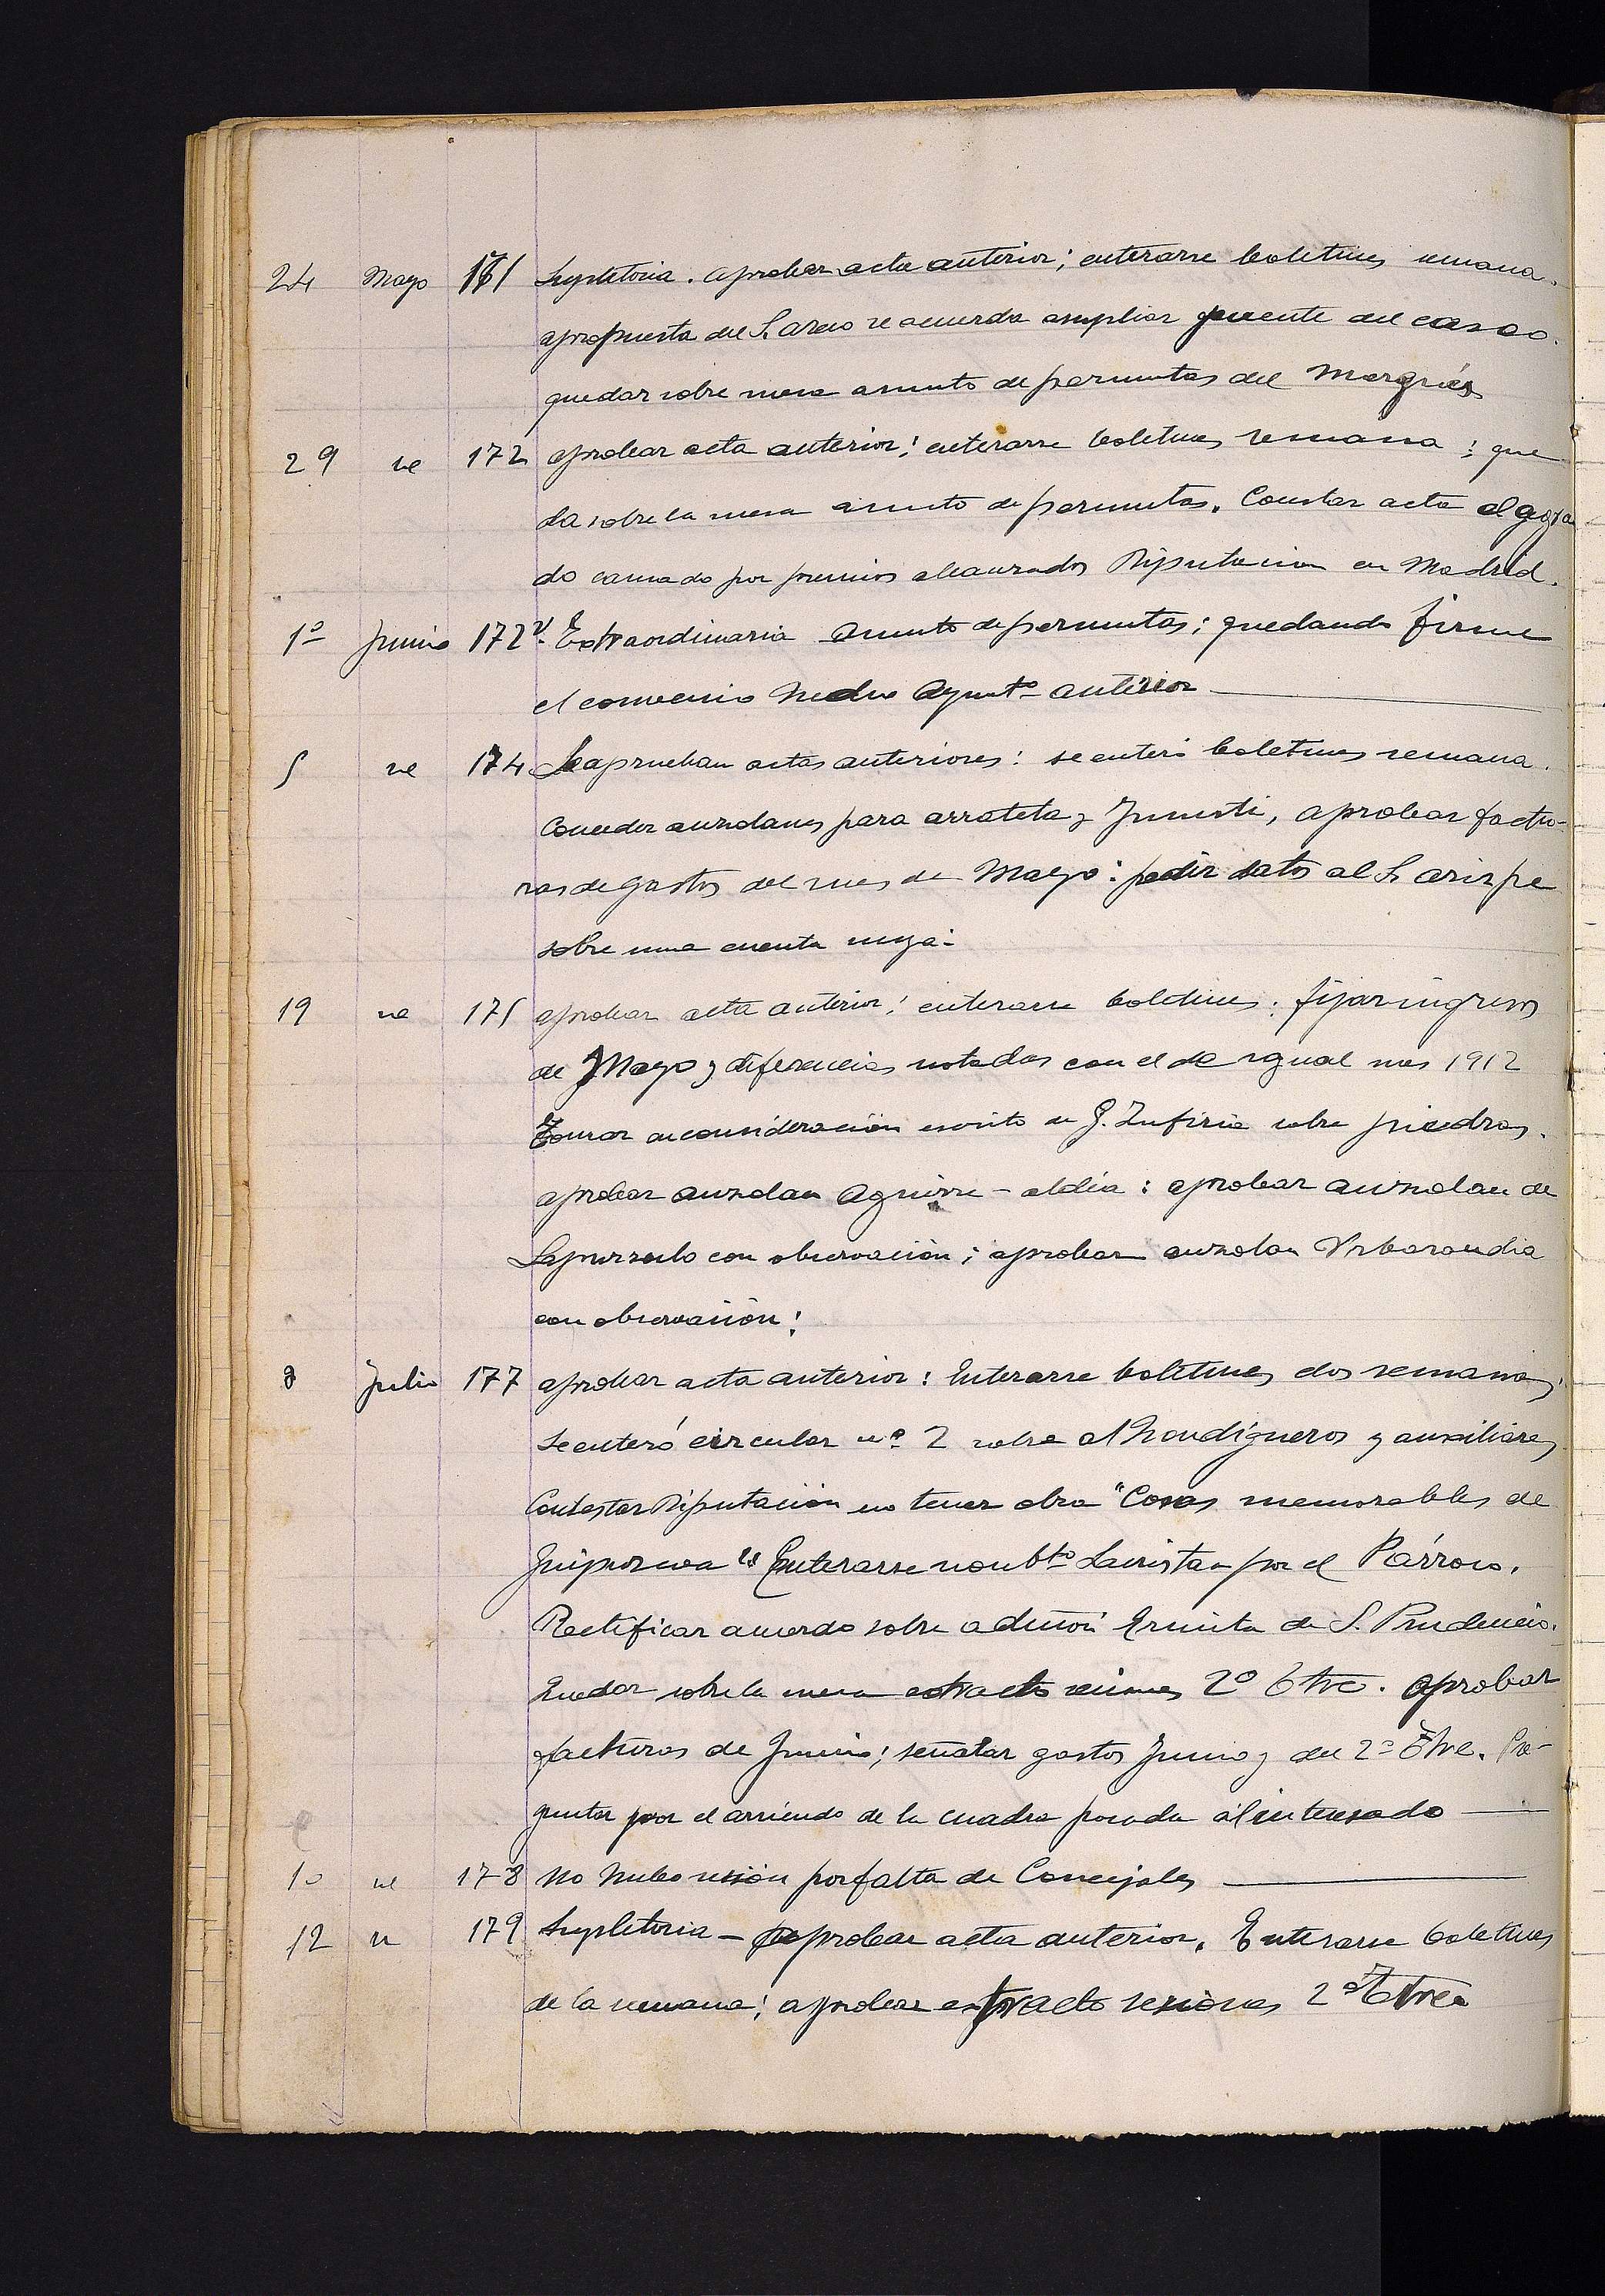 24 Mayo 171 Supletoria. aprobar acta anterior; enterarse boletines semana.
apropuesta del Sr. se acuerda ampliar puente del casco.
quedar sobre mesa asunto de permutas del Marqués
29 ue 172 aprobar acta anterior; enterarse boletines semana; que
da sobre la mesa asunto de permutas. Constar acta el agra
do causado por premios alcanzados Diputacion en Madrid.
1º Junio 172v. Extraordinaria asunto de permutas; quedando firme
el convenio hecho Ayuntº anterior
5 ue 174 Se aprueban actas anteriores: se enteró boletines semana.
Conceder auzolanes para arrateta y Junusti, aprobar factu-
ras de gastos del mes de Mayo: pedir datos al Sr arispe
sobre una cuenta suya.
19 ue 175 aprobar acta anterior; enterarse boletines; fijar ingresos
de Mayo y diferencias notadas con el de igual mes 1912
Tomar en consideración escrito de J. Zufiria sobre piedras.
aprobar auzolan Aguirre-aldia: aprobar auzolan de
con observación; aprobar auzolan Urbarandia
con observación;
8 Julio 177 aprobar acta anterior: Enterarse boletines dos semanas;
Se enteró circular nº 2 sobre alhondigueros y auxiliares
Contestar Diputación no tener obra "Cosas memorables de
Guipuzcoa" Enterarse nombtº Sacristan por el Párroco.
Rectificar acuerdo sobre admon Ermita de S. Prudencio.
Quedar sobre la mesa extracto sesiones 2º tre. Aprobar
facturas de Junio; señalar gastos Junio y del 2º tre. Pre-
guntar por el arriendo de la cuadra posada al interesado
10 ue 178 No hubo sesión por falta de Concejales
12 u 179 Supletoria - aprobar acta anterior. Enterarse boletines
de la semana; aprobar extracto sesiones 2º tre